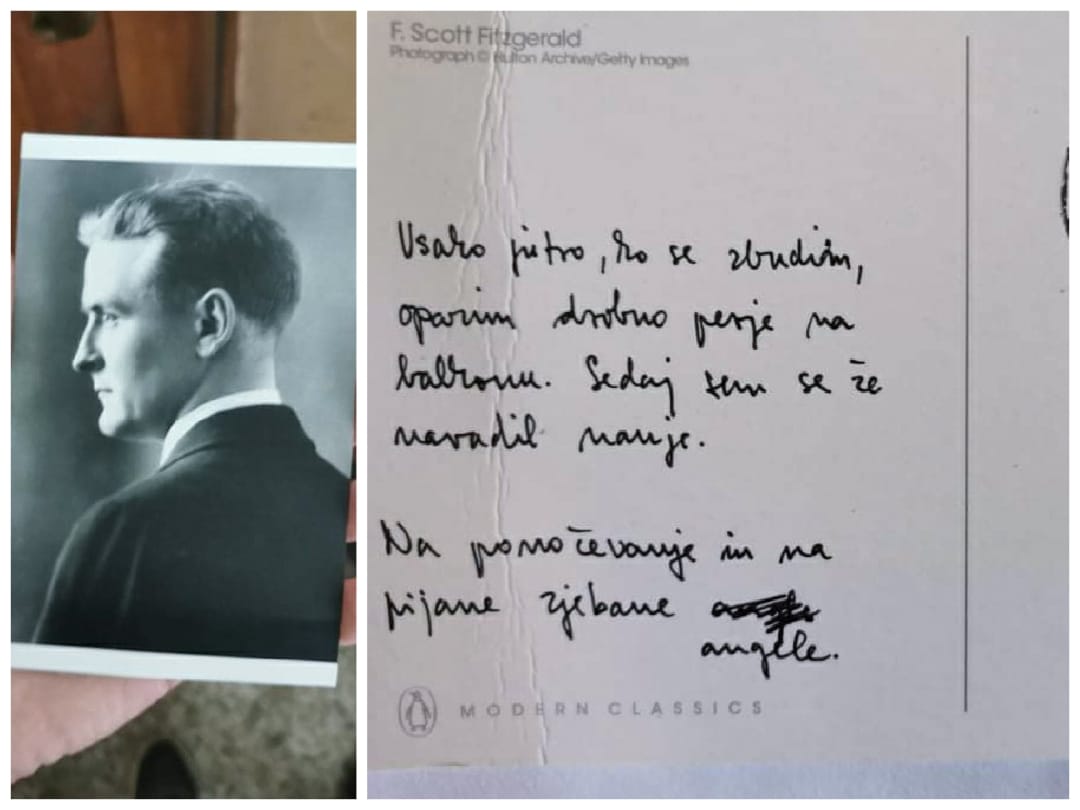 F. Scott Fitzgerald
Photograph © Hulton Archive/Getty Images
Vsako jutro, ko se zbudim,
opazim drobno perje na
balkonu. Sedaj sem se že
navadil nanje.
Na ponočevanje in na
pijane zjebane
angele.
MODERN CLASSICS